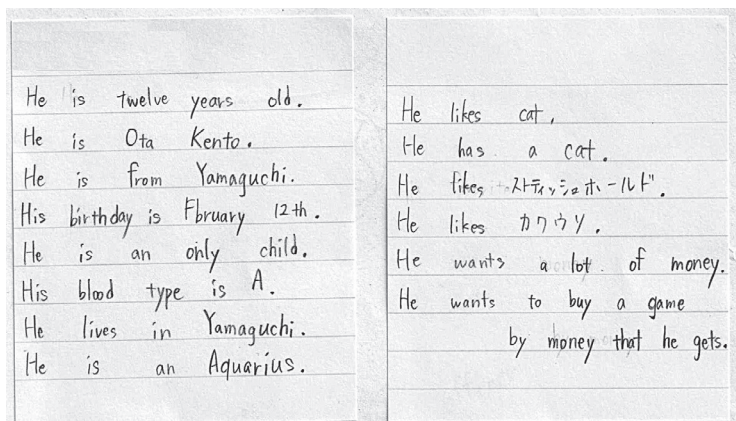 He is twelve years old.
He is Ota Kento.
He is from Yamaguchi.
His birthday is Fbruary 12th.
He is an only child.
His blood type is A.
He lives in Yamaguchi.
He is an Aquarius.
He likes cat.
He has a cat.
He likes ストティッシュホールド.
He likes カワウソ.
He wants a lot of money.
He wants to buy a game
by money that he gets.